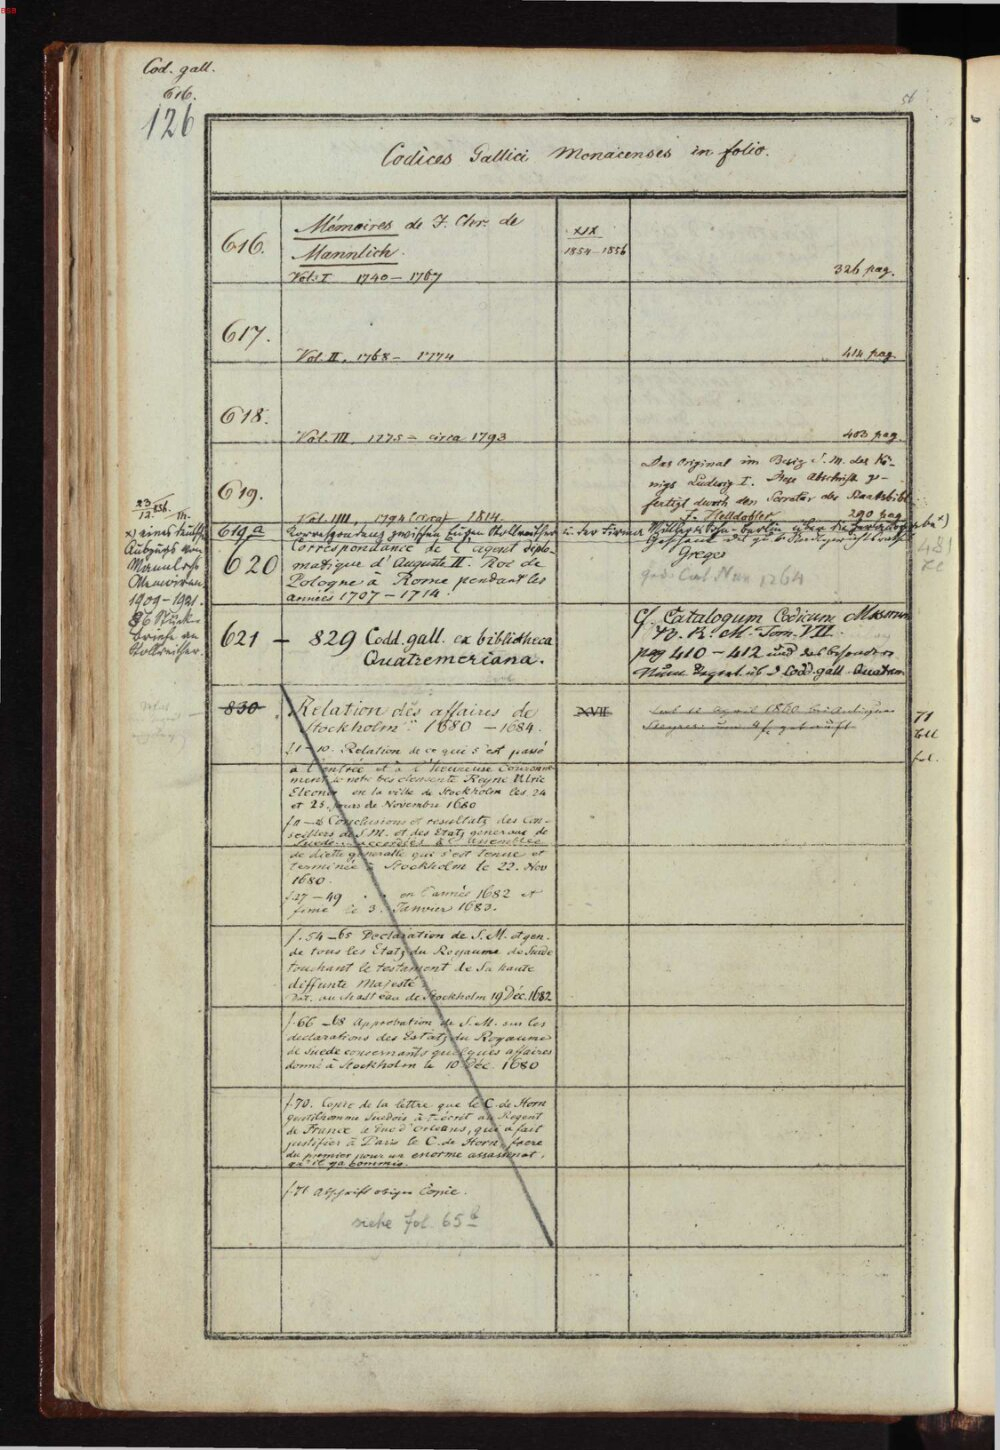 BSB
Cod. gall.
616.
126
56
Codices Gallici Monacenses in folio.
616.
Mémoires de J. Chr. de
Mannlich.
Vol. I 1740 – 1767
XIX
1854–1856
326 pag.
617.
Vol. II. 1768 – 1774
414 pag.
618.
Vol. III. 1775 – circa 1793
403 pag.
619.
Vol. IIII, 1794 (circa) – 1814
Das Original im Besiz S. M. des Kö-
nigs Ludwig I. Diese Abschrift ge-
fertigt durch den Secretär der Staatsbibl.
J. Helldobler 290 pag.
619a
Korrespondenz zwischen Eugen Stollreither u. der Firma
620
Correspondance de l'agent diplo-
matique d'Auguste II. Roi de
Pologne à Rome pendant les
années 1707 – 1714.
Geschenk
Greges
1264
481
x) eines
Auszugs von
Mannlichs
Memoiren
1909–1921.
86 Stück
Briefe an
Stollreither.
621 – 829 Codd. gall. ex bibliotheca
Quatremeriana.
Cf. Catalogum Codicum Msscrum
Tom. VII.
pag 410 – 412 und das besondere
Codd. gall. Quatrem
830
Relation des affaires de
Stockholm 1680 – 1684.
XVII
April 1860
71
fol.
f. 1–10. Relation de ce qui s'est passé
à l'entrée et à l'heureuse Couronne-
ment de notre tres clemente Reyne Ulric
Eleonor en la ville de Stockholm les 24
et 25. jours de Novembre 1680
Conclusions et resultatz des Con-
seillers de S. M. et des Etatz generaux de
Suede accordés à l'assemblée
de diette generalle qui s'est tenue et
terminée à Stockholm le 22. Nov
1680.
f. 27–49 en l'année 1682 et
finie le 3. Janvier 1683.
f. 54–65 Declaration de S. M. et gen.
de tous les Etatz du Royaume de Suede
touchant le testament de Sa haute
diffunte Majesté
Dat. au chasteau de Stockholm 19 Déc. 1682
f. 66–68 Approbation de S. M. sur les
declarations des Estatz du Royaume
de Suede concernants quelques affaires
donné à Stockholm le 10 Déc. 1680
f. 70. Copie de la lettre que le C. de Horn
gentilhomme Suedois à écrit au Regent
de France le Duc d'Orleans, qui a fait
justifier à Paris le C. de Horn, frere
du premier pour un enorme assassinat,
qu'il y a commis.
f. 71 Abschrift obiger Copie.
siehe fol. 65b